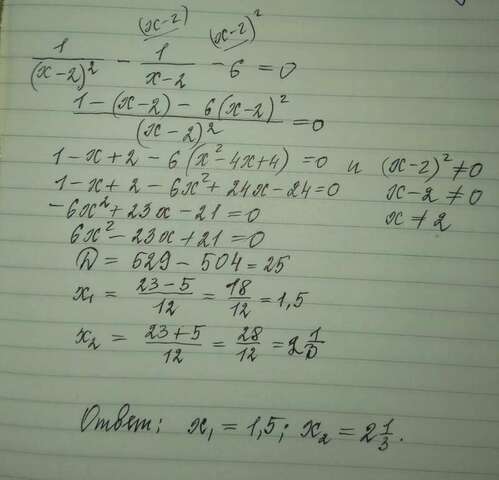 (x-2) (x-2)²
1/(x-2)² - 1/(x-2) - 6 = 0
(1-(x-2) - 6(x-2)²)/(x-2)² = 0
1-x+2-6(x²-4x+4) = 0 и (x-2)² ≠ 0
1-x+2-6x²+24x-24=0 x-2 ≠ 0
-6x²+23x-21=0 x ≠ 2
6x²-23x+21=0
D = 529-504=25
x₁ = (23-5)/12 = 18/12 = 1,5
x₂ = (23+5)/12 = 28/12 = 2 1/3
Ответ: x₁ = 1,5; x₂ = 2 1/3.